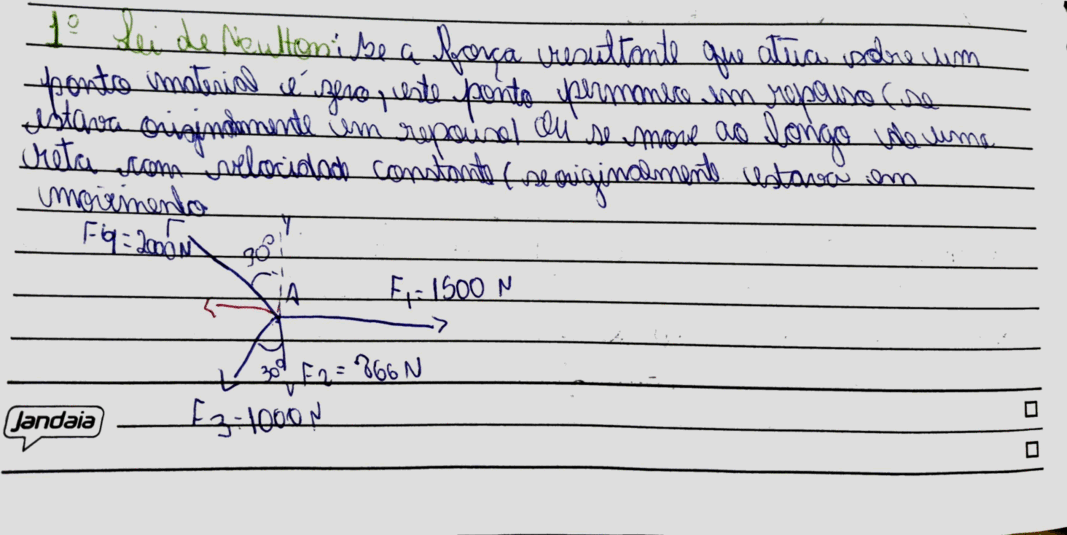 1º Lei de Newton: Se a força resultante que atua sobre um
ponto material é zero, este ponto permanece em repouso (se
estava originalmente em repouso) ou se move ao longo de uma
reta com velocidade constante (se originalmente estava em
movimento
F4=2000N
30º
Y
A
F1=1500 N
30º
F2=866N
F3=1000N
Jandaia